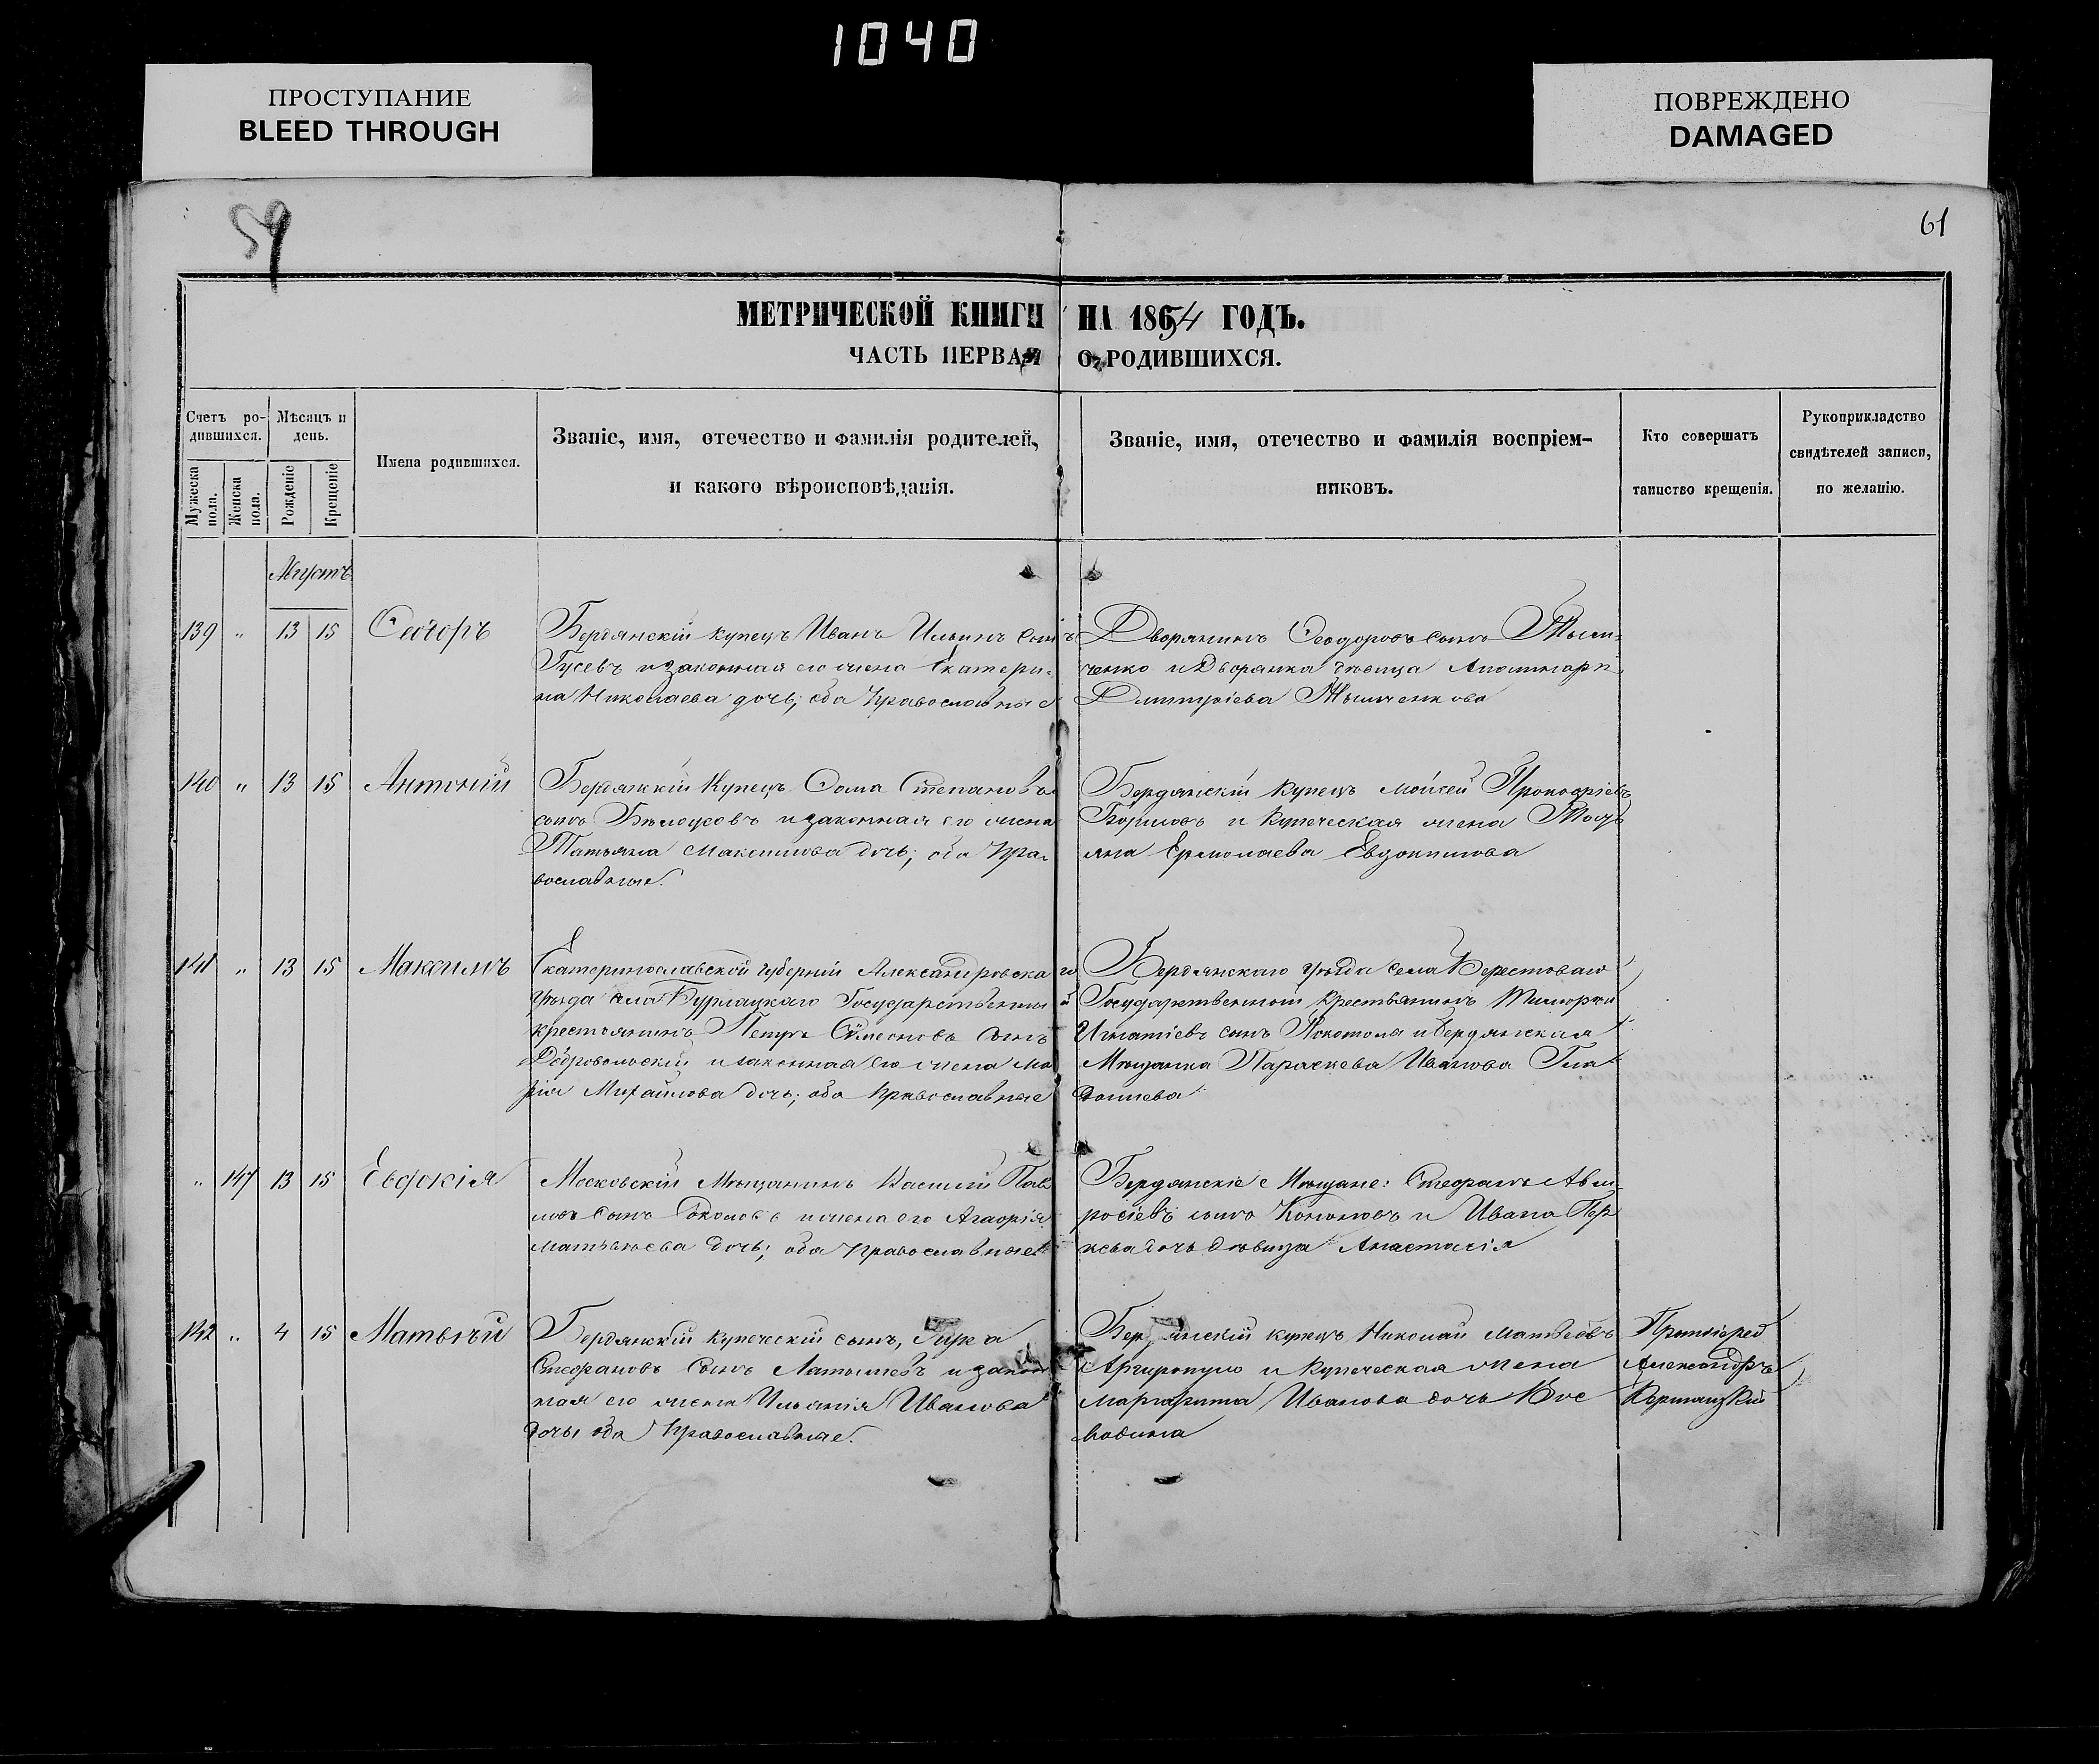 1040
ПРОСТУПАНИЕ
BLEED THROUGH
ПОВРЕЖДЕНО
DAMAGED
59
61
МЕТРИЧЕСКОЙ КНИГИ НА 1864 ГОДЪ.
ЧАСТЬ ПЕРВАЯ О РОДИВШИХСЯ.
Счетъ ро-
дившихся.
Мужеска пола.
Женска пола.
Мѣсяцъ и
день.
Рожденіе
Крещеніе
Имена родившихся.
Званіе, имя, отечество и фамилія родителей,
и какого вѣроисповѣданія.
Званіе, имя, отечество и фамилія воспріем-
никовъ.
Кто совершатъ
таинство крещенія.
Рукоприкладство
свидѣтелей записи,
по желанію.
Августъ
139 " 13 15 Ѳеодоръ
Бердянскій купецъ Иванъ Ильинъ сынъ
Гусевъ и законная его жена Екатери-
на Николаева дочь, оба Православные
Дворянинъ Ѳеодоровъ сынъ
ченко и Дворянка дѣвица
Димитріева
140 " 13 15 Антоній
Бердянскій Купецъ Ѳома Степановъ
сынъ Бѣлоусовъ и законная его жена
Татьяна Максимова дочь; оба Пра-
вославные.
Бердянскій Купецъ Мойсей Прокофіевъ
и Купеческая жена
Ермолаева Евдокимова
141 " 13 15 Максимъ
Екатеринославской губерніи Александровскаго
уѣзда села Бурлацкаго Государственный
крестьянинъ Петръ Симеоновъ сынъ
Добровольскій и законная его жена Ма
рія Михайлова дочь; оба Православные
Бердянскаго уѣзда села Берестоваго
Государственный крестьянинъ Тимофей
Игнатіевъ сынъ и Бердянская
Мѣщанка Параскева Иванова Гла
" 147 13 15 Евдокія
Московскій Мѣщанинъ Василій Пав
ловъ сынъ и жена его Агафія
Матвѣева дочь; оба Православные
Бердянскіе Мѣщане: Стефанъ Амв
росіевъ сынъ Кононовъ и Ивана
дочь дѣвица Анастасія
142 " 4 15 Матвѣй
Бердянскій купеческій сынъ,
Стефановъ сынъ и закон
ная его жена Иванова
дочь оба Православные.
Бердянскій купецъ Николай Матвѣевъ
Аргиропуло и Купеческая жена
Маргарита Иванова дочь Вое
водина
Протоіерей
Александръ